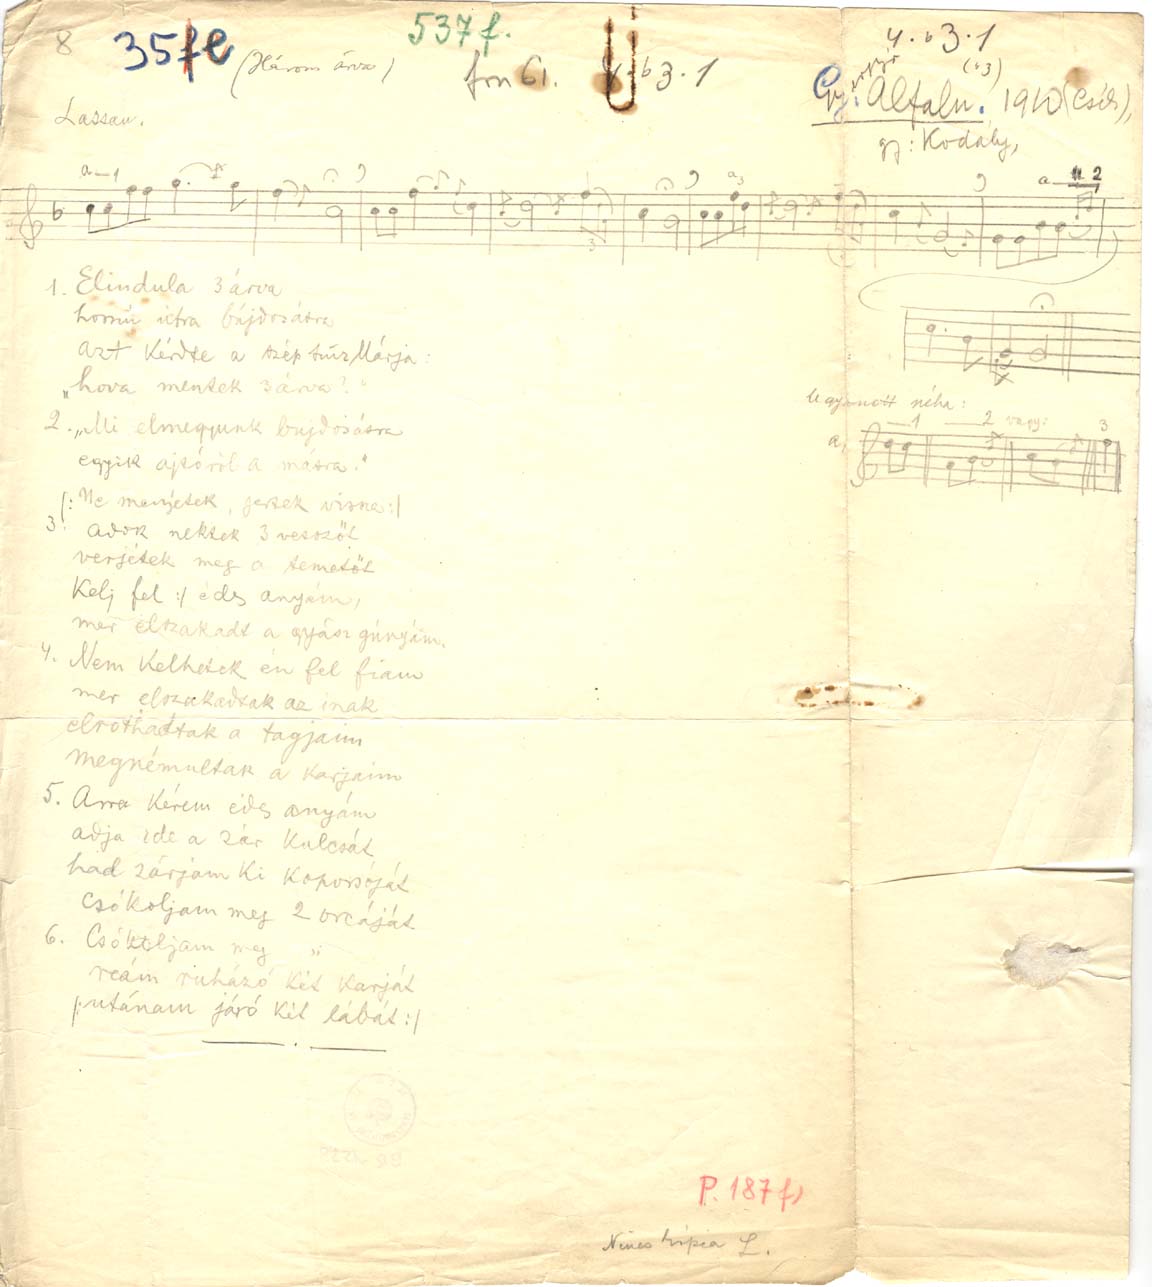 8
35fe
(Három árva)
537 f.
fon 61.
4·b3·1
4·b3·1
(b3)
Gy. Alfalu. 1910 (Csík),
gy: Kodály,
Lassan.
a—1
a3
a— 2
3
1. Elindula 3 árva
hosszú útra bújdosásra
azt kérdte a szép szűz Márja:
„hova mentek 3 árva?"
2. „Mi elmegyünk bujdosásra
egyik ajtóról a másra."
|: Ne menjetek, jertek vissza :|
3. adok nektek 3 vesszőt
verjétek meg a temetőt
Kelj fel :| édes anyám,
mer elszakadt a gyász gúnyám.
4. Nem kelhetek én fel fiam
mer elszakadtak az inak
elrothadtak a tagjaim
megnémultak a karjaim
5. Arra kérem édes anyám
adja ide a zár kulcsát
had zárjam ki koporsóját
csókoljam meg 2 orcáját
6. Csókoljam meg „
reám ruházó két karját
|: utánam járó két lábát :|
Ugyanott néha:
a, —1 —2 vagy: 3
P. 187 f)
Nincs kópia L.